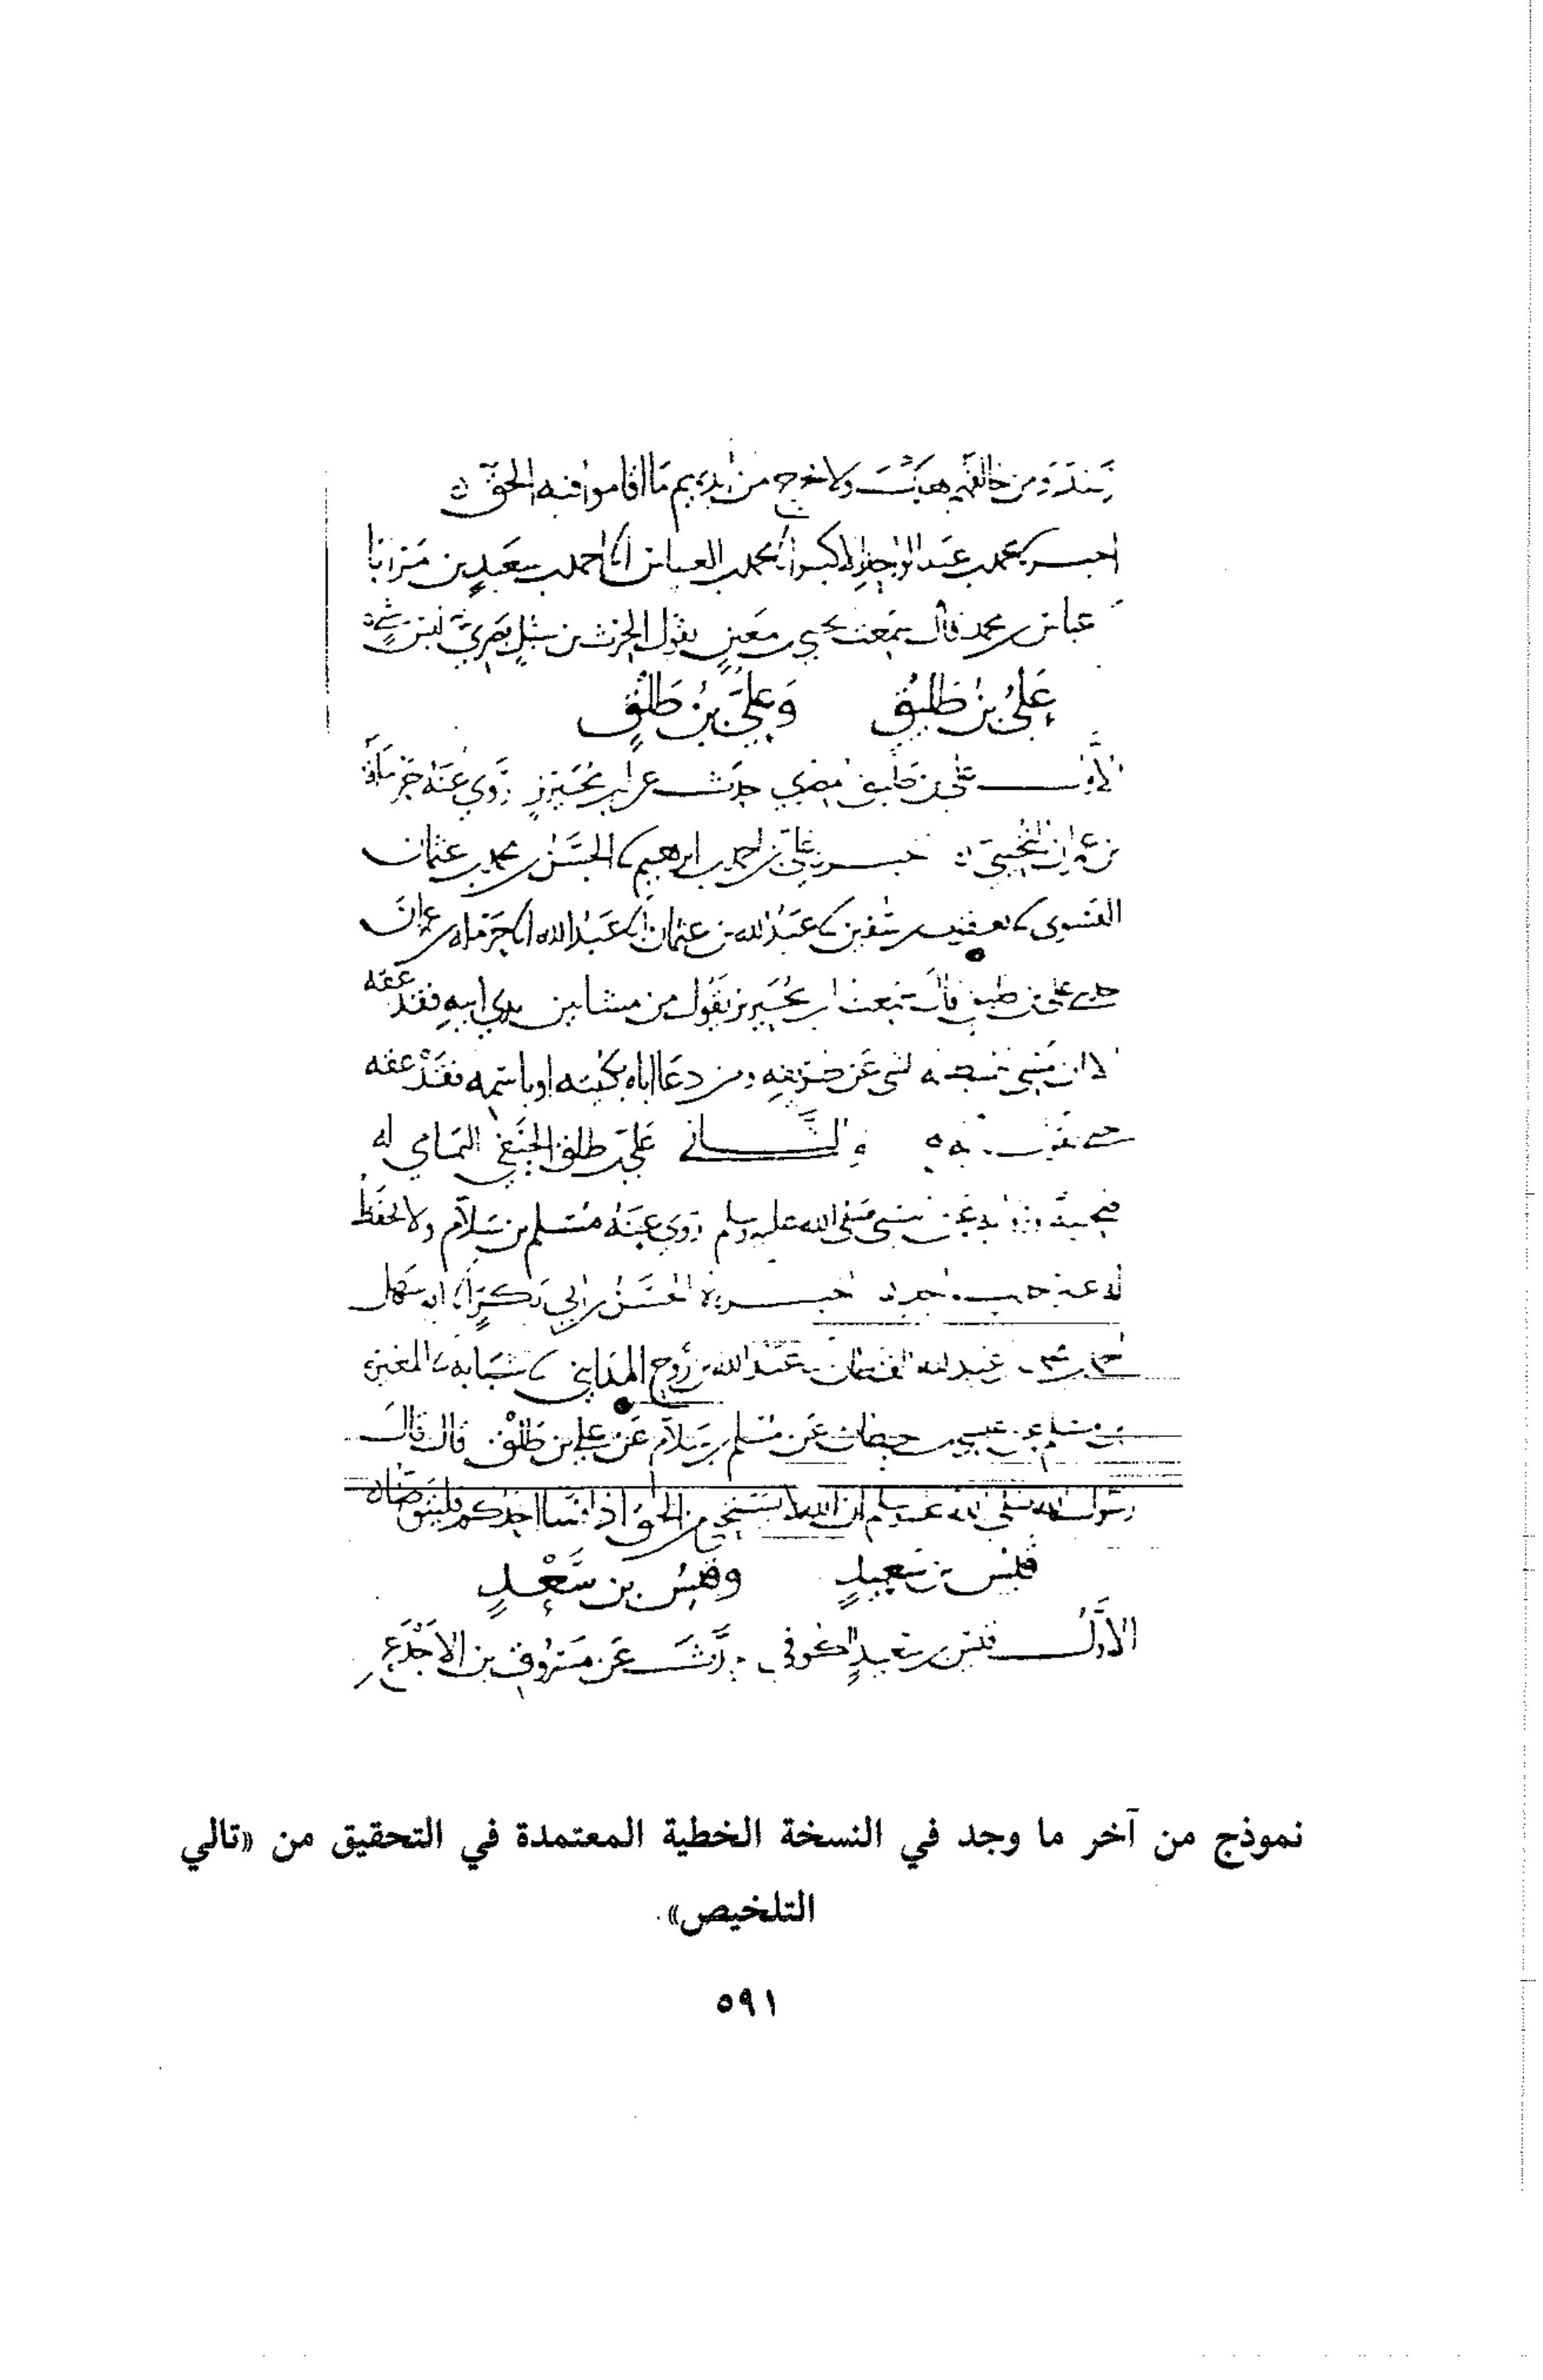 ومن خالفهم هلك ولا تخرج من أيديهم ما أقاموا فيه الحق
محمد بن عبد الواحد الأكبر أنا محمد بن العباس أنا أحمد بن سعيد بن مرابا
عباس بن محمد قال سمعت يحيى بن معين يقول الحرث بن شبل بصري ليس بشيء
علي بن طليق وعلي بن طلق
الأول علي بن طليق مصري حدث عن ابن محيريز روى عنه حرملة
بن عمران التجيبي علي بن أحمد بن إبرهيم الحسن بن محمد بن عثمان
الفسوي يعقوب بن سفين عبد الله بن عثمان أنا عبد الله أنا حرملة بن عمران
علي بن طليق قال سمعت ابن محيريز يقول من مشا بين يدي أبيه فقد عقه
الا ان عن طريقه ومن دعا أباه بكنيته أو باسمه فقد عقه
والثاني علي بن طلق الحنفي اليمامي له
صحبة عن النبي صلى الله عليه وسلم روى عنه مسلم بن سلام ولا يحفظ
الحسن بن أبي بكر أنا أبو سهل
أحمد بن محمد بن عبد الله القطان عبد الله بن روح المدايني شبابة المغيرة
بن مسلم عن عيسى بن حطان عن مسلم بن سلام عن علي بن طلق قال قال
رسول الله صلى الله عليه وسلم ان الله لا يستحي من الحق اذا فسا احدكم فليتوضأ
قيس بن سعيد وقيس بن سعد
الأول قيس بن سعيد الكوفي حدث عن مسروق بن الأجدع
نموذج من آخر ما وجد في النسخة الخطية المعتمدة في التحقيق من «تالي
التلخيص».
٥٩١